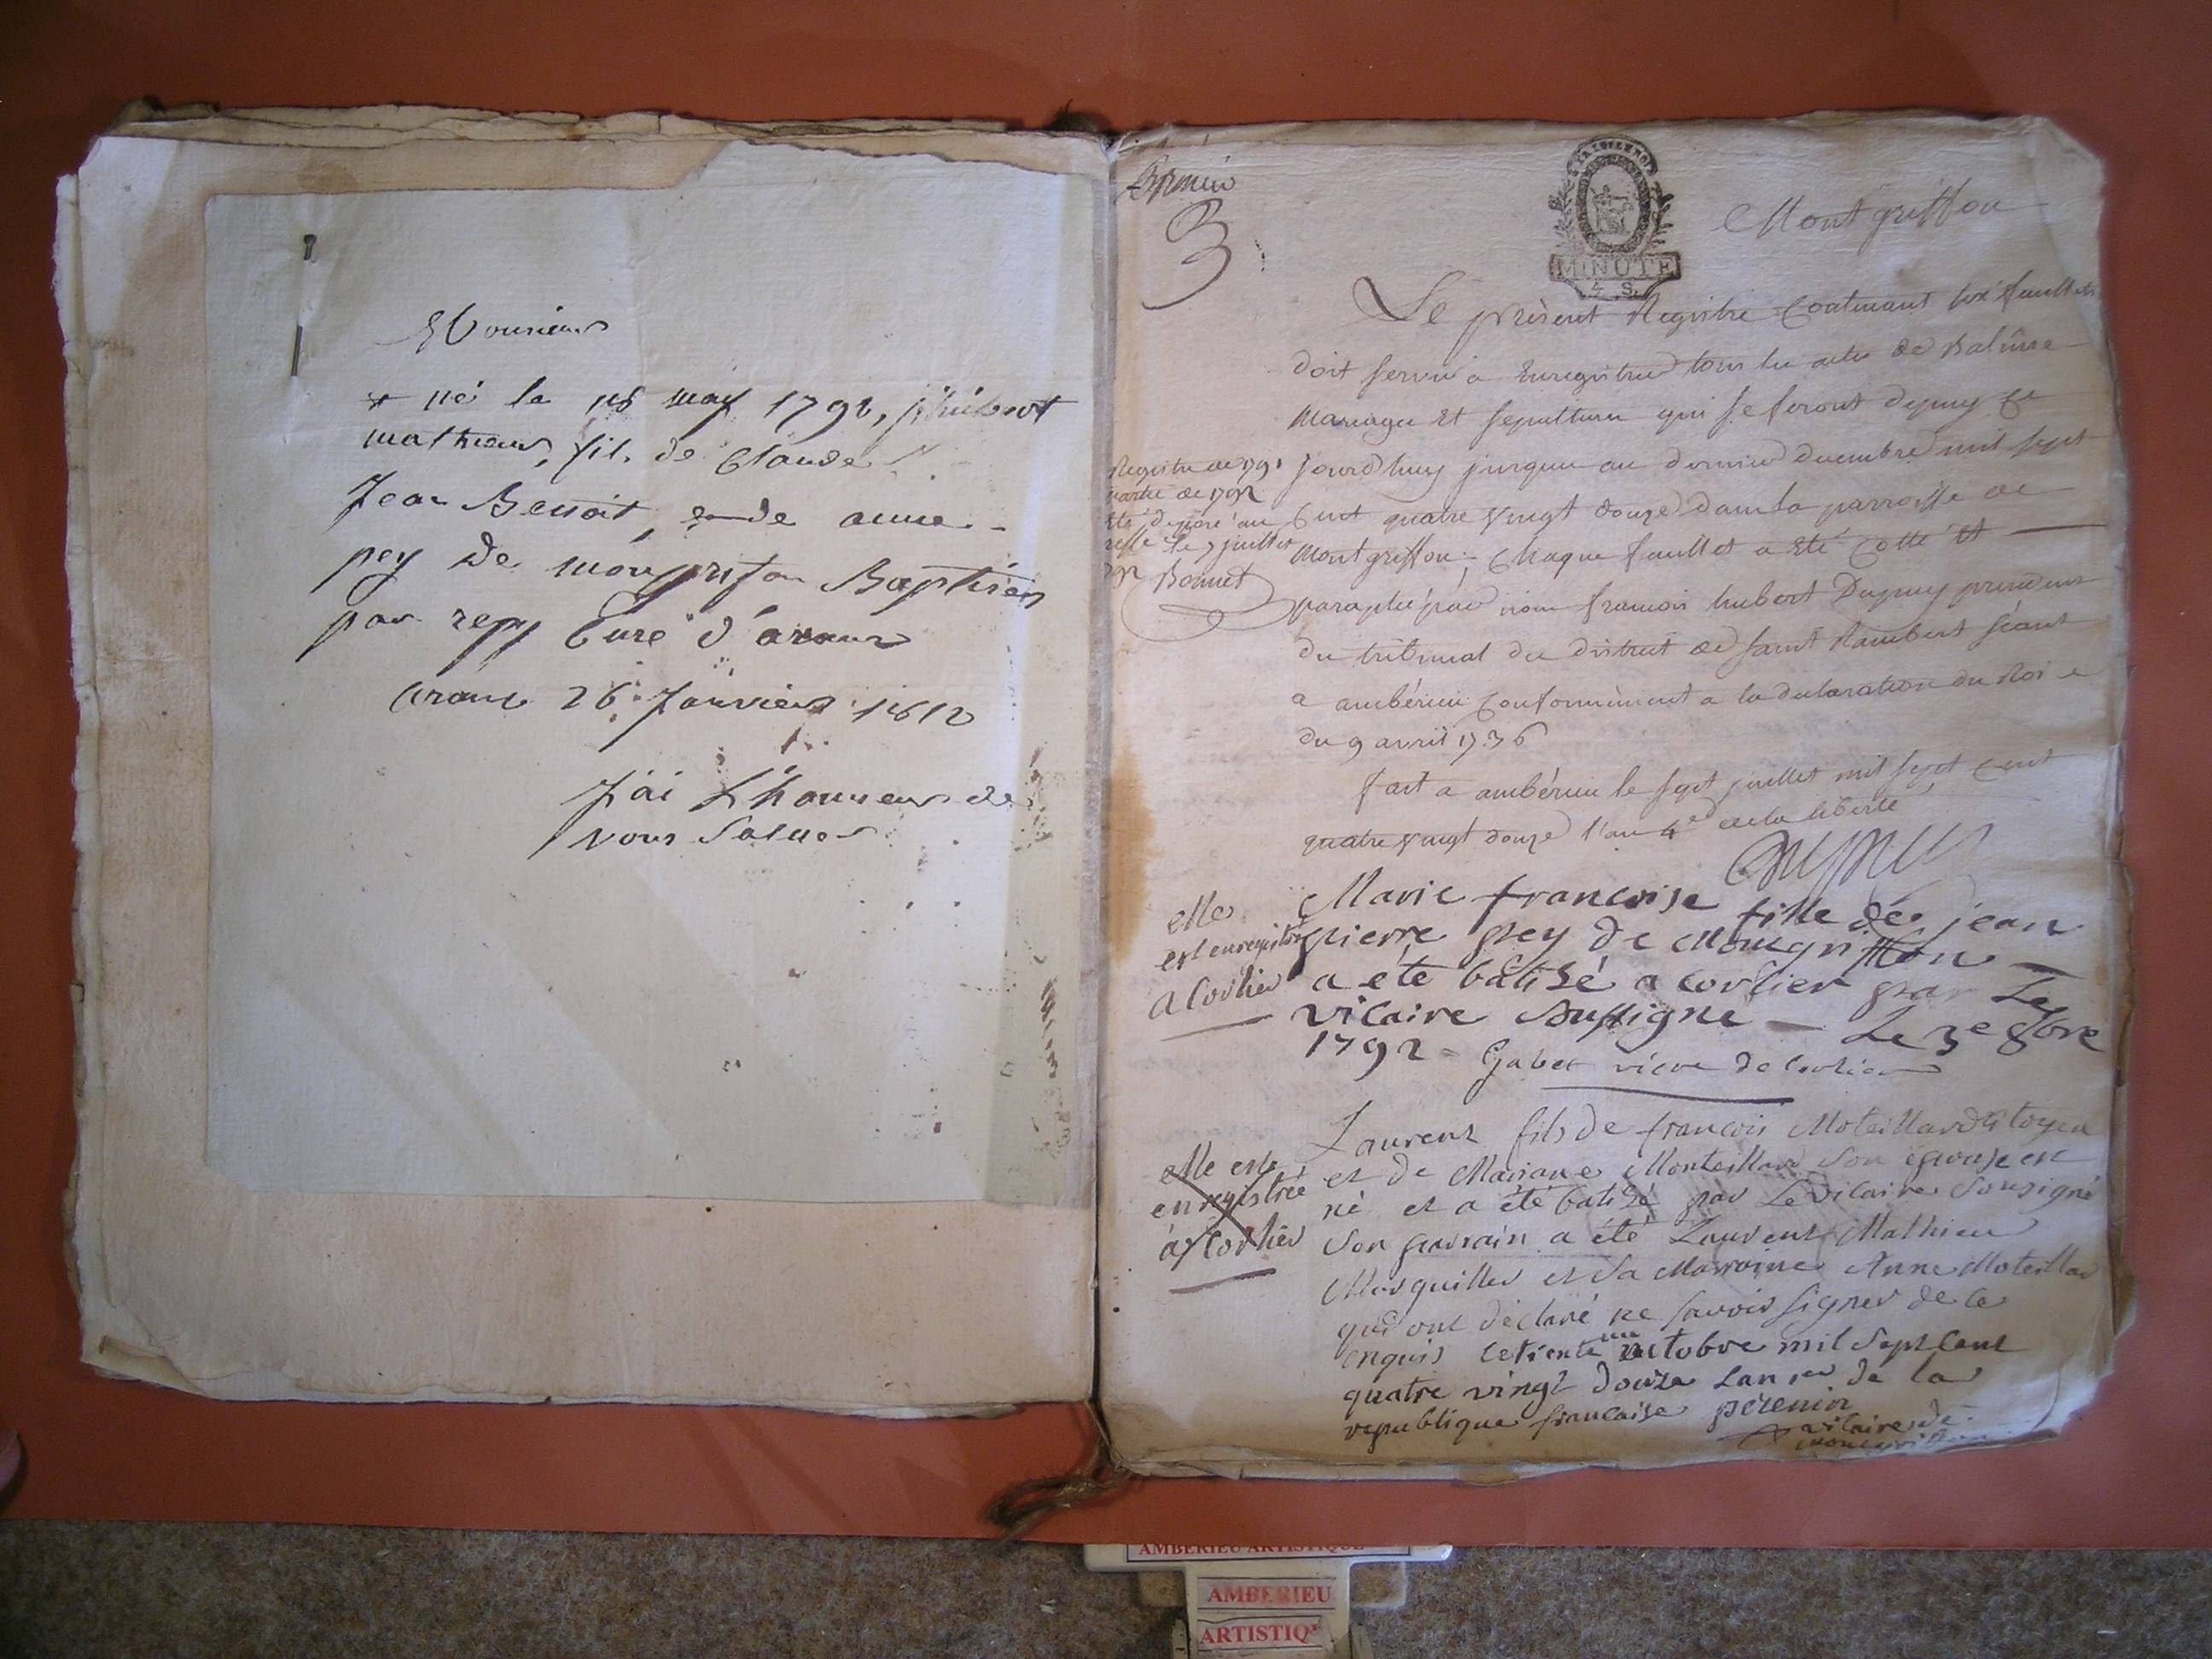 Monsieur
né le 18 may 1792, philibert
mathieu, fils de Claude
Jean Benoit, et de anne
pey de mongrifon Baptisé
par rey Curé d'aranc
aranc 26 Janvier 1812
J'ai L'honneur de
vous Saluer
3
MINUTE
4 S.
Montgriffon
Le présent Registre Contenant six feuillets
doit servir a Enregistrer tous les actes de Batême
Mariages Et sepultures qui se feront depuy Ce
jourdhuy jusques au dernier decembre mil sept
Cent quatre vingt douze dans la parroisse de
Montgriffon; Chaque feuillet a été Cotté Et
paraphé par nous francois hubert Dupuy president
du tribunal du district de saint Rambert séant
a ambérieu Conformément a la declaration du Roi
du 9 avril 1736
fait a ambérieu le sept juillet mil sept Cent
quatre vingt douze l'an 4e de la liberté
Registre de 1791
partie de 1792
Eté déposé au
le 7 juillet
Bonnet
Dupuy
elle
est enregistré
a Corlier
Marie francoise fille de jean
pierre pey de Mongriffon
a été batisé a corlier par Le
vicaire Sussigne Le 3e 8bre
1792 Gabet vicre de Corlier
elle est
enregistrée
a Corlier
Laurent fils de francois Moteillard Citoyen
et de Mariane Monteillard son epouse est
né et a été batisé par Le vicaire Sousigné
Son parrain a été Laurent Mathieu
Marquiller et Sa Marraine Anne Moteillard
qui ont déclaré ne savoir signer de ce
enquis le trente un octobre mil Sept Cent
quatre vingt douze Lan 1er de la
republique francaise
vicaire de
mongriffon
AMBERIEU ARTISTIQUE
AMBERIEU
ARTISTIQ